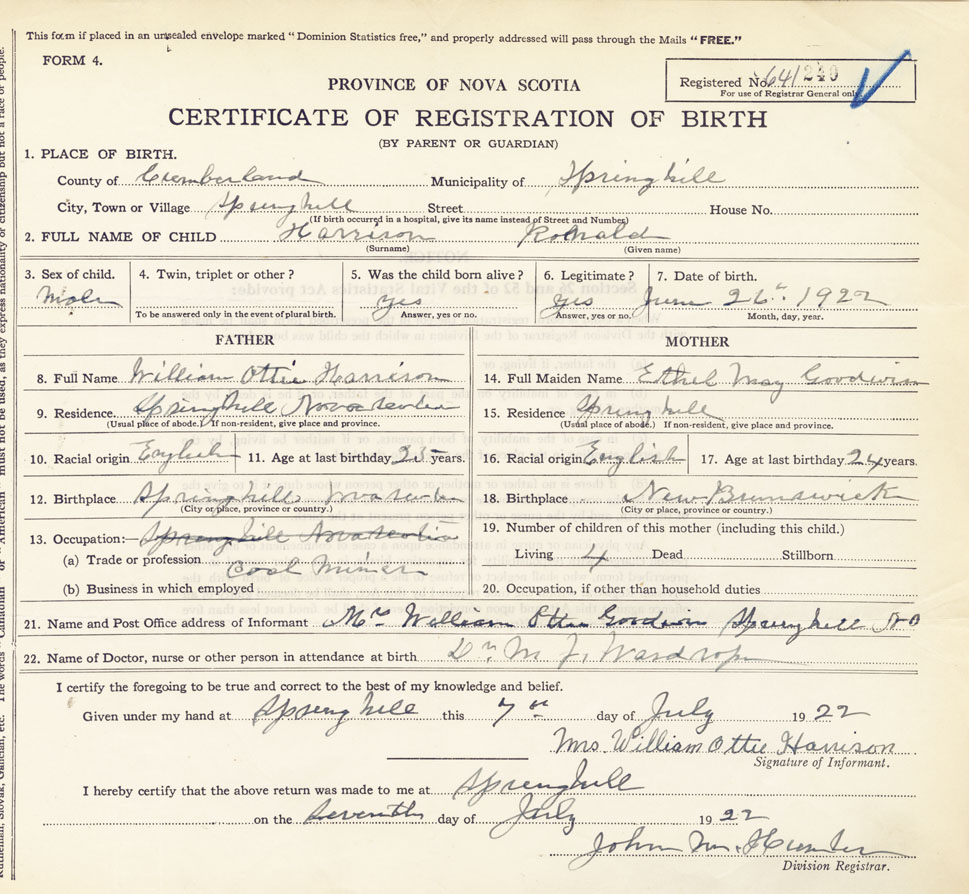 This form if placed in an unsealed envelope marked "Dominion Statistics free," and properly addressed will pass through the Mails "FREE."
FORM 4.
Registered No. 641 240
For use of Registrar General only
PROVINCE OF NOVA SCOTIA
CERTIFICATE OF REGISTRATION OF BIRTH
(BY PARENT OR GUARDIAN)
1. PLACE OF BIRTH.
County of Cumberland Municipality of Springhill
City, Town or Village Springhill Street House No.
(If birth occurred in a hospital, give its name instead of Street and Number)
2. FULL NAME OF CHILD Harrison Ronald
(Surname) (Given name)
3. Sex of child. 4. Twin, triplet or other? 5. Was the child born alive? 6. Legitimate? 7. Date of birth.
Male yes yes June 26th 1922
To be answered only in the event of plural birth. Answer, yes or no. Answer, yes or no. Month, day, year.
FATHER MOTHER
8. Full Name William Ottie Harrison 14. Full Maiden Name Ethel May Goodwin
9. Residence Springhill Nova Scotia 15. Residence Springhill
(Usual place of abode.) If non-resident, give place and province. (Usual place of abode.) If non-resident, give place and province.
10. Racial origin English 11. Age at last birthday 25 years. 16. Racial origin English 17. Age at last birthday 24 years.
12. Birthplace Springhill Nova Scotia 18. Birthplace New Brunswick
(City or place, province or country.) (City or place, province or country.)
13. Occupation:— Springhill Nova Scotia 19. Number of children of this mother (including this child.)
(a) Trade or profession Coal Miner Living 4 Dead Stillborn
(b) Business in which employed 20. Occupation, if other than household duties
21. Name and Post Office address of Informant Mrs William Ottie Goodwin Springhill NS
22. Name of Doctor, nurse or other person in attendance at birth Dr. M. J. Wardrope
I certify the foregoing to be true and correct to the best of my knowledge and belief.
Given under my hand at Springhill this 7th day of July 1922
Mrs. William Ottie Harrison
Signature of Informant.
I hereby certify that the above return was made to me at Springhill
on the seventh day of July 1922
John M. Hunter
Division Registrar.